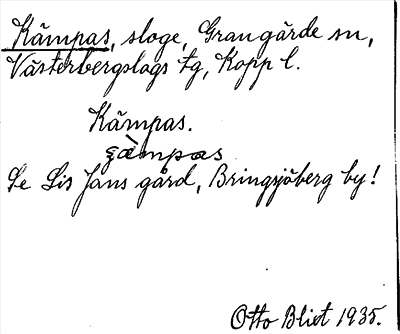 Kämpas, sloge, Grangärde sn,
Västerbergslags tg, Kopp l.
Kämpas.
çàmpas
Se Lis Jans gård, Bringsjöberg by!
Otto Blixt 1935.